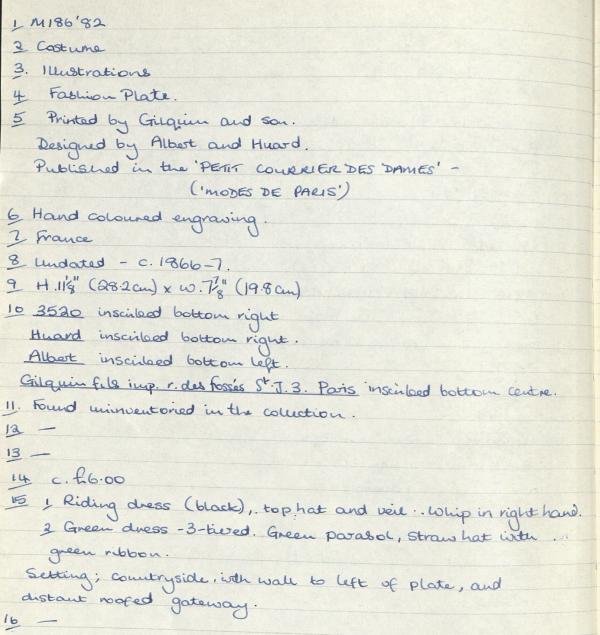 1 M186'82
2 Costume
3. Illustrations
4 Fashion Plate.
5 Printed by Gilquin and son.
Designed by Albert and Huard.
Published in the 'PETIT COURRIER DES DAMES' -
('MODES DE PARIS')
6 Hand coloured engraving.
7 France
8 Undated - c. 1866-7.
9 H. 11 1/8" (28.2cm) x W. 7 7/8" (19.8cm)
10 3520 inscribed bottom right
Huard inscribed bottom right.
Albert inscribed bottom left.
Gilquin fils imp. r. des fossés St. J. 3. Paris inscribed bottom centre.
11. Found uninventoried in the collection.
12 —
13 —
14 c. £6.00
15 1 Riding dress (black), top hat and veil.. Whip in right hand.
2 Green dress - 3-tiered. Green parasol, straw hat with ...
green ribbon.
Setting; countryside, with wall to left of plate, and
distant roofed gateway.
16 —